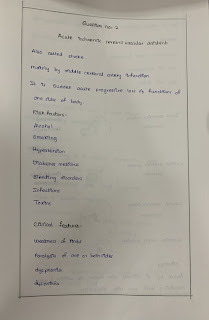 Question no: 2
Acute ischaemic cerebral vascular accident
Also called stroke
mainly by middle cerebral artery infarction
It is sudden acute progressive loss of functions of
one side of body.
Risk factors:
Alcohol
Smoking
Hypertension
Diabetes mellitus
Bleeding disorders
Infections
Toxins
Clinical features:
weakness of limbs
Paralysis of one or both sides
dysphonia
dysarthria